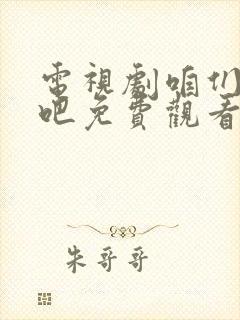 電視劇咱们
吧免費觀看
朱哥哥